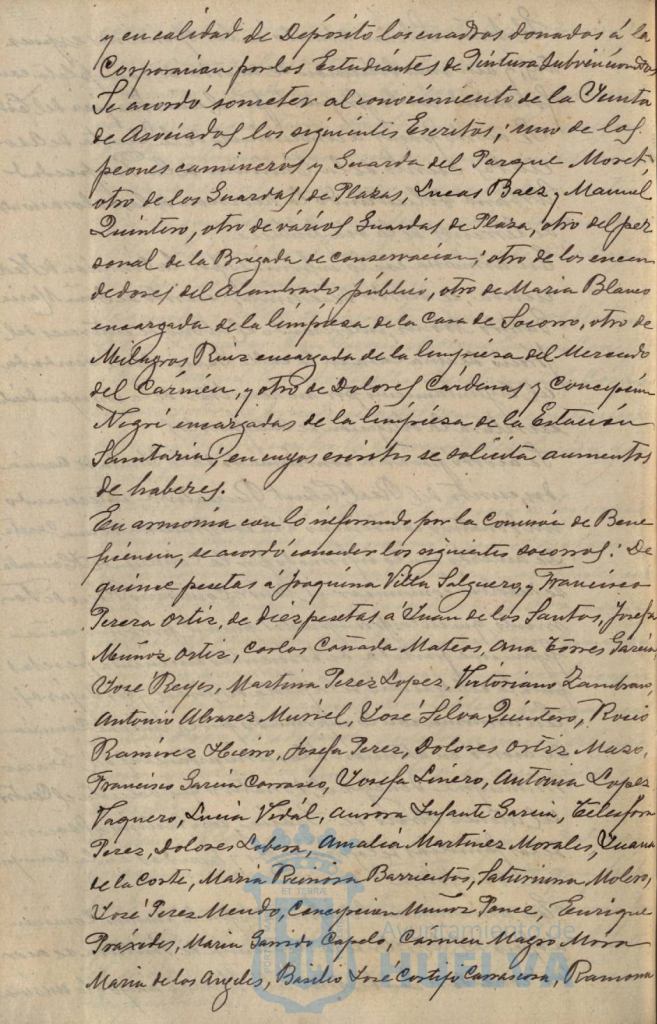 y en calidad de Depósito los cuadros donados á la
Corporacion por los Estudiantes de Pintura Subvencionados
Se acordó someter al conocimiento de la Junta
de Asociados los siguientes Escritos; uno de los
peones camineros y Guarda del Parque Moret,
otro de los Guardas de Plazas, Lucas Baez y Manuel
Quintero, otro de varios Guardas de Plaza, otro del per
sonal de la Brigada de conservacion; otro de los encen
dedores del Alumbrado público, otro de Maria Blanco
encargada de la limpiesa de la Casa de Socorro, otro de
Milagros Ruiz encargada de la limpiesa del Mercado
del Cármen, y otro de Dolores Cárdenas y Concepcion
Negrí encargadas de la limpiesa de la Estación
Sanitaria; en cuyos escritos se solicita aumentos
de haberes.
En armonia con lo informado por la Comisión de Bene
ficencia, se acordó conceder los siguientes socorros: De
quince pesetas á Joaquina Villa Salguero, y Francisco
Perera Ortiz, de diez pesetas á Juan de los Santos, Josefa
Muñoz Ortiz, Carlos Cañada Mateos, Ana Torres Garcia,
José Reyes, Martina Perez Lopez, Victoriano Zambrano,
Antonio Alvarez Muriel, José Silva Quintero, Rocio
Ramirez Hierro, Josefa Perez, Dolores Ortiz Mazo,
Francisco Garcia Carrasco, Josefa Linero, Antonia Lopez
Vaquero, Lucia Vidál, Aurora Infante Garcia, Telesfora
Perez, Dolores Lobera, Amalia Martinez Morales, Juana
de la Corte, Maria Reinosa Barrientos, Saturnina Molero,
José Perez Mendo, Concepcion Muñoz Ponce, Enrique
Práxedes, Maria Garrido Capelo, Carmen Magro Mora
Maria de los Angeles, Basilio José Cortijo Carrascosa, Ramona
Ayuntamiento de
HUELVA